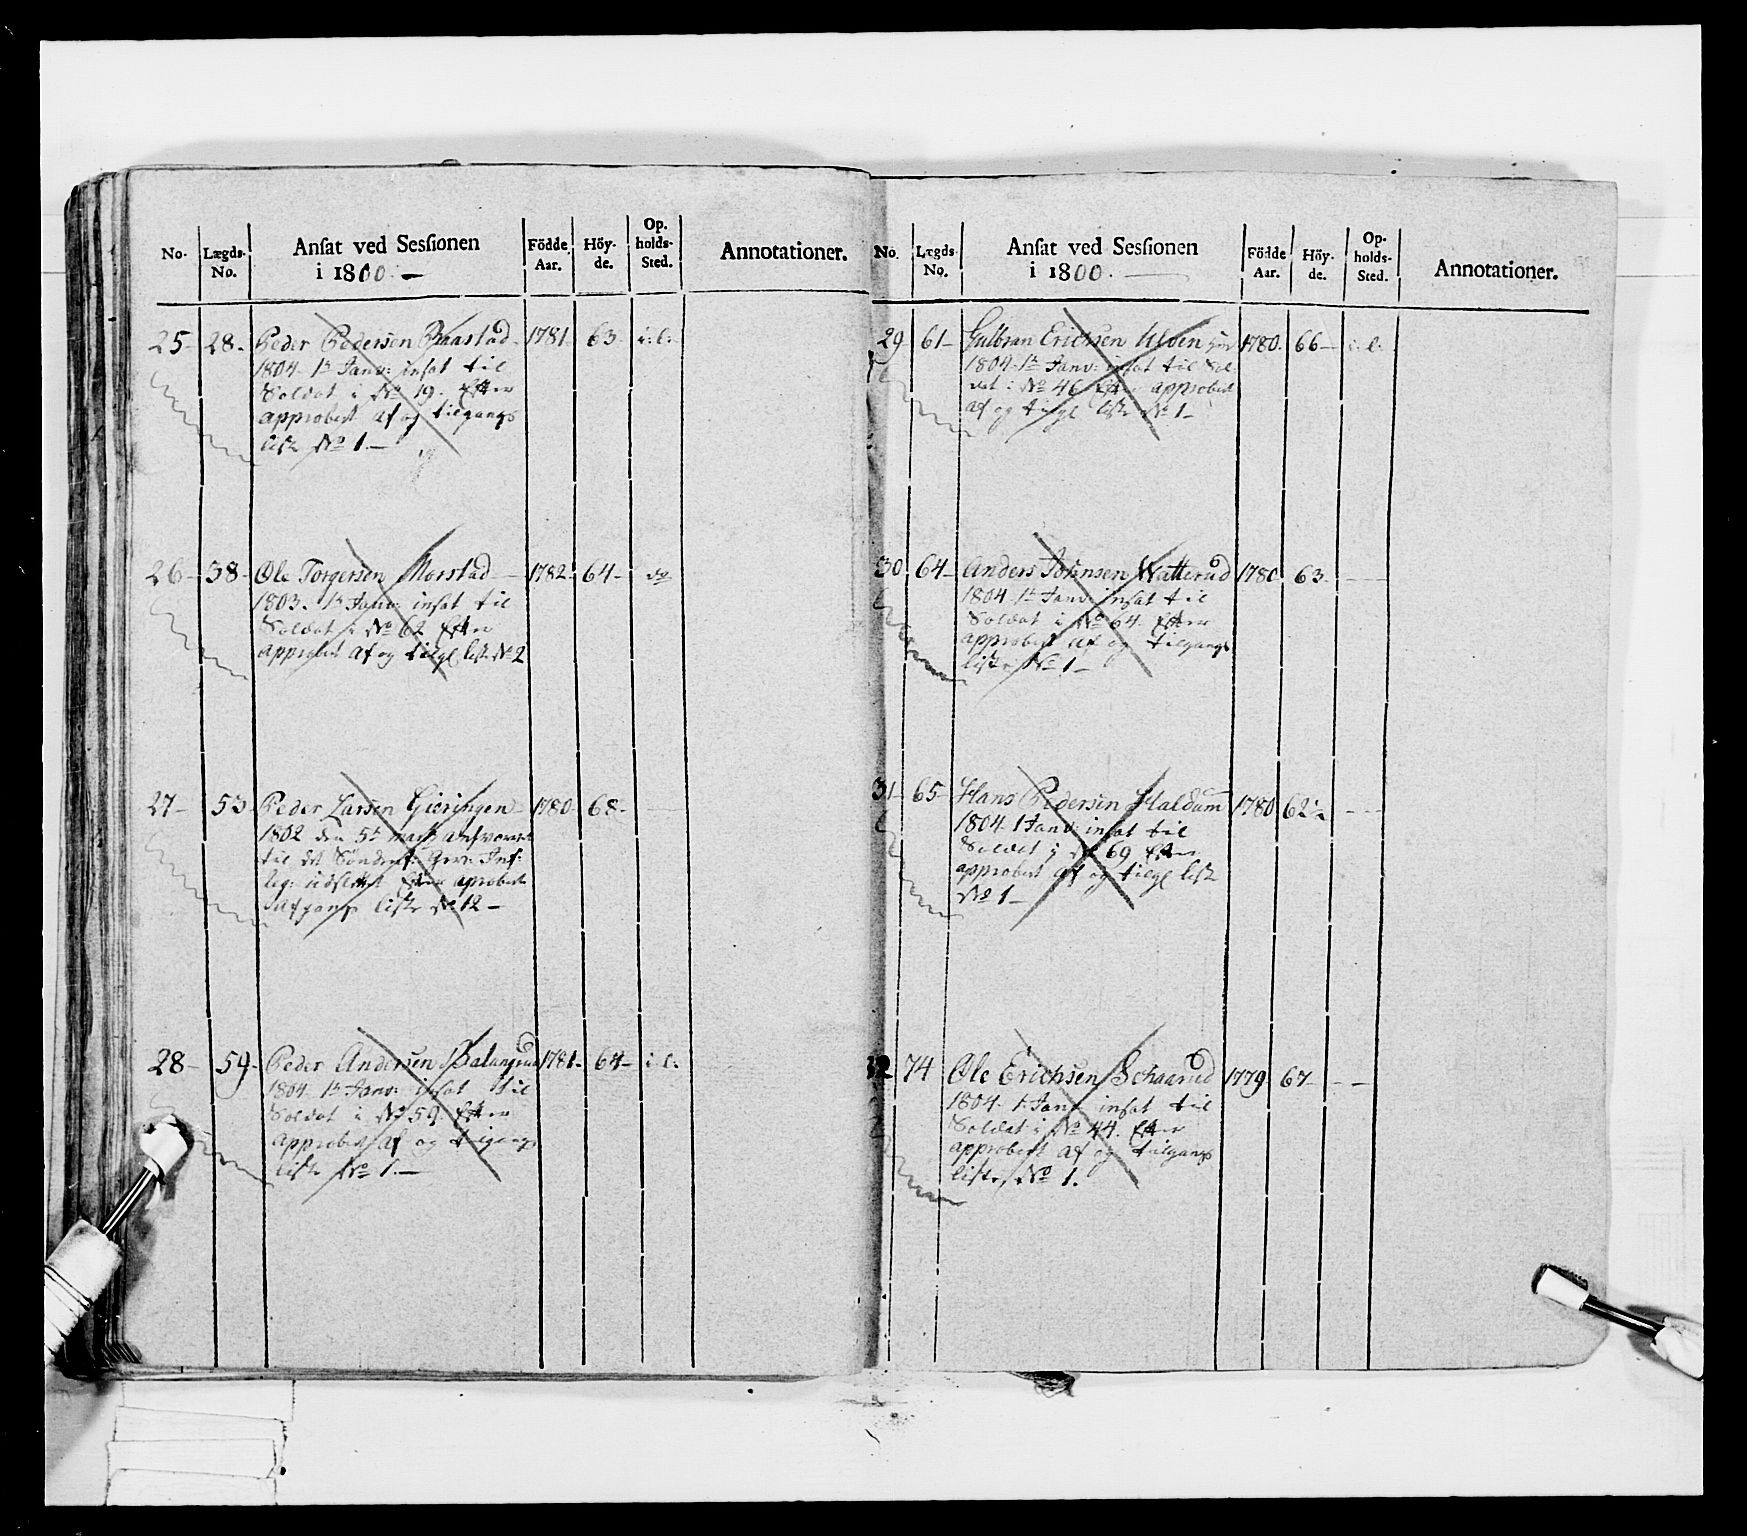 No. Lægds- No. Ansat ved Sessionen i 1800. — Födde Aar. Höy- de. Op. holds- Sted. Annotationer.
25 – 28 – Peder Pedersen Baastad – 1781 – 63 – i: l:
1804 – 1t Janv: insat til
Soldat i No 19. Efter
approbert af og tilgangs
liste No 1 –
26 – 38 – Ole Torgersen Morstad – 1782 – 64 – do
1803. 1t Janv: insat til
Soldat i No 62 Efter
approbert af og tilgl liste No 2
27 – 53 – Peder Larsen Gieringen – 1780 – 68 –
1802 den 5t
til det Søndenf: Inf:
Reg: Efter aprobert
Afgangs liste No 12 –
28 – 59 – Peder Andersen 1781 – 64 – i: l:
1804 – 1t Janv: insat til
Soldat i No 59. Efter
approbert af og tilgangs
liste No 1. –
No. Lægds- No. Ansat ved Sessionen i 1800. — Födde Aar. Höy- de. Op- holds- Sted. Annotationer.
29 61 – Gulbran Erichsen Ulven 1780. 66 – i: l:
1804 – 1t Janv: insat til Sol-
dat i No 46 Efter approbert
af og tilgl liste No 1 –
30 64 – Anders Johnsen Watterud 1780 63 –
1804 – 1t Janv: insat til
Soldat i No 64. Efter
approbert af og tilgangs
liste No 1 –
31 – 65 – Hans Pedersen Haldum 1780 62½
1804 – 1 Janv: insat til
Soldat i No 69 Efter
approbert af og tilgl liste
No 1 –
32 74 Ole Erichsen Schaarud 1779 67 –
1804 – 1. Janv insat til
Soldat i No 44. Efter
approbert af og tilgangs
liste No 1.